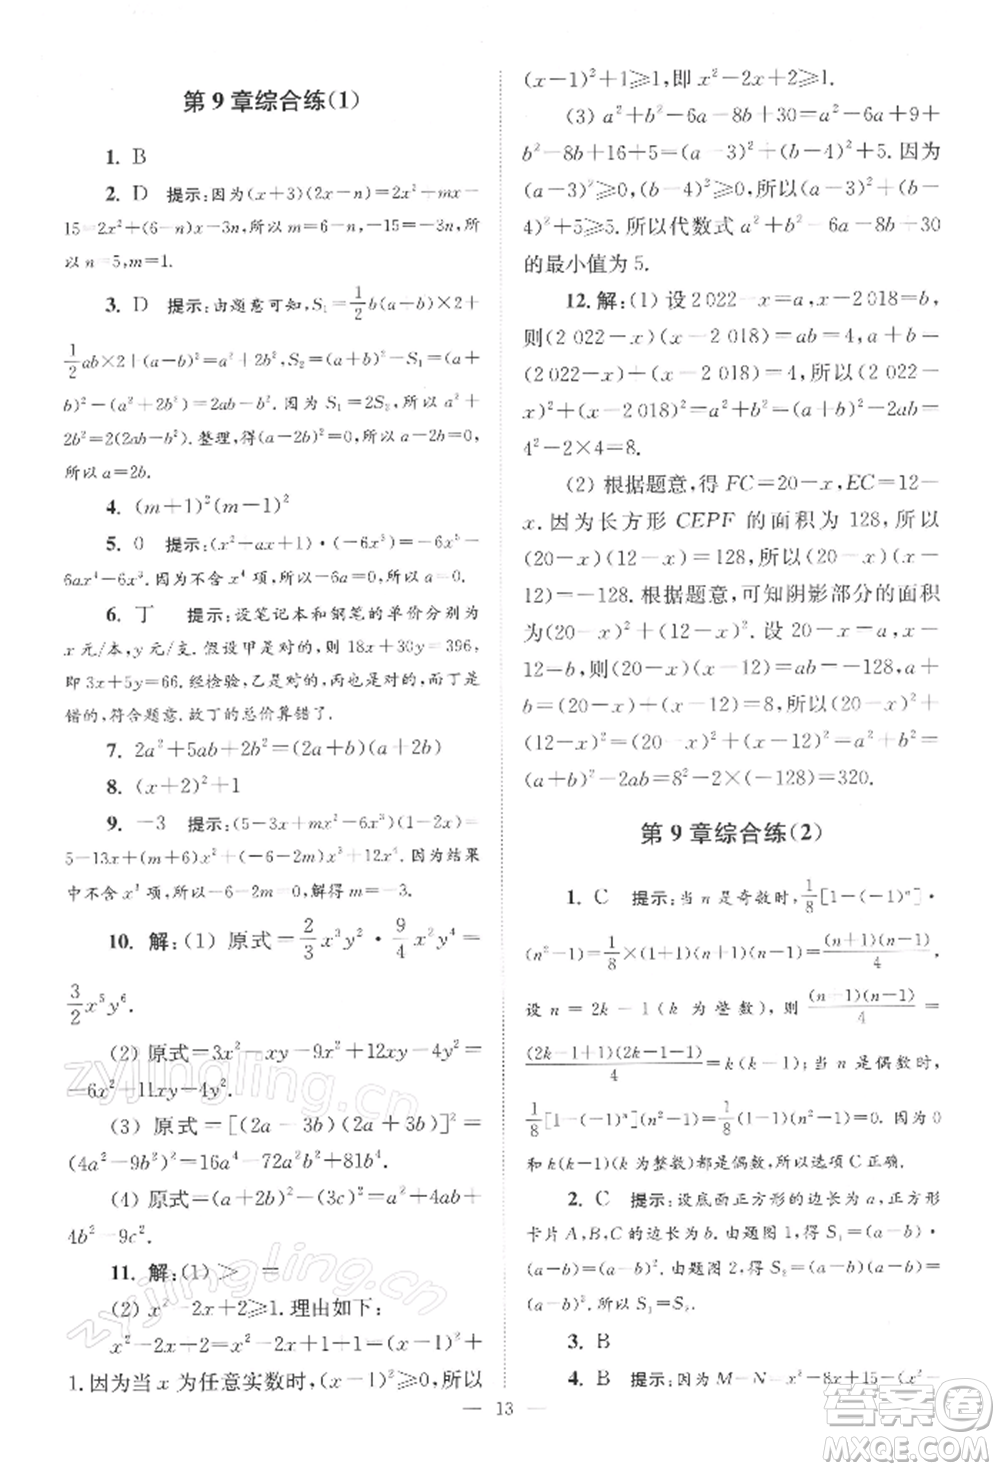 第 9 章综合练(1)
1. B
2. D 提示:因为(x+3)(2x-n)=2x²+mx-
15=2x²+(6-n)x-3n,所以 m=6-n,-15=-3n,所
以 n=5,m=1.
3. D 提示:由题意可知,S₁=1/2 b(a+b)×2+
1/2 ab×2+(a-b)²=a²+2b²,S₂=(a+b)²-S₁=(a+
b)²-(a²+2b²)=2ab-b². 因为 S₁=2S₂,所以 a²+
2b²=2(2ab-b²).整理,得(a-2b)²=0,所以 a-2b=0,
所以 a=2b.
4. (m+1)²(m-1)²
5. 0 提示:(x²-ax+1)·(-6x³)=-6x⁵+
6ax⁴-6x³.因为不含 x⁴ 项,所以-6a=0,所以 a=0.
6. 丁 提示:设笔记本和钢笔的单价分别为
x 元/本,y 元/支. 假设甲是对的,则 18x+30y=396,
即 3x+5y=66. 经检验,乙是对的,丙也是对的,而丁是
错的,符合题意.故丁的总价算错了.
7. 2a²+5ab+2b²=(2a+b)(a+2b)
8. (x+2)²+1
9. -3 提示:(5-3x+mx²-6x³)(1-2x)=
5-13x+(m+6)x²+(-6-2m)x³+12x⁴.因为结果
中不含 x³ 项,所以-6-2m=0,解得 m=-3.
10. 解:(1) 原式=2/3 x³y²·9/4 x²y⁴=
3/2 x⁵y⁶.
(2) 原式=3x²-xy-9x²+12xy-4y²=
-6x²+11xy-4y².
(3) 原式=[(2a-3b)(2a+3b)]²=
(4a²-9b²)²=16a⁴-72a²b²+81b⁴.
(4) 原式=(a+2b)²-(3c)²=a²+4ab+
4b²-9c².
11. 解:(1)> =
(2) x²-2x+2≥1.理由如下:
x²-2x+2=x²-2x+1+1=(x-1)²+
1.因为当 x 为任意实数时,(x-1)²≥0,所以
(x-1)²+1≥1,即 x²-2x+2≥1.
(3) a²+b²-6a-8b+30=a²-6a+9+
b²-8b+16+5=(a-3)²+(b-4)²+5. 因为
(a-3)²≥0,(b-4)²≥0,所以(a-3)²+(b-
4)²+5≥5. 所以代数式 a²+b²-6a-8b+30
的最小值为 5.
12. 解:(1) 设 2 022-x=a,x-2 018=b,
则(2 022-x)(x-2 018)=ab=4,a+b=
(2 022-x)+(x-2 018)=4,所以(2 022-
x)²+(x-2 018)²=a²+b²=(a+b)²-2ab=
4²-2×4=8.
(2) 根据题意,得 FC=20-x,EC=12-
x.因为长方形 CEPF 的面积为 128,所以
(20-x)(12-x)=128,所以(20-x)(x-
12)=-128.根据题意,可知阴影部分的面积
为(20-x)²+(12-x)². 设 20-x=a,x-
12=b,则(20-x)(x-12)=ab=-128,a+
b=(20-x)+(x-12)=8,所以(20-x)²+
(12-x)²=(20-x)²+(x-12)²=a²+b²=
(a+b)²-2ab=8²-2×(-128)=320.
第 9 章综合练(2)
1. C 提示:当 n 是奇数时,1/8[1-(-1)ⁿ]·
(n²-1)=1/8×(1+1)(n+1)(n-1)=(n+1)(n-1)/4.
设 n=2k-1(k 为整数),则 (n+1)(n-1)/4=
(2k-1+1)(2k-1-1)/4=k(k-1);当 n 是偶数时,
1/8[1-(-1)ⁿ](n²-1)=1/8(1-1)(n²-1)=0. 因为 0
和 k(k-1)(k 为整数)都是偶数,所以选项 C 正确.
2. C 提示:设底面正方形的边长为 a,正方形
卡片 A,B,C 的边长为 b. 由题图 1,得 S₁=(a-b)·
(a-b)=(a-b)². 由题图 2,得 S₂=(a-b)(a-b)=
(a-b)².所以 S₁=S₂.
3. B
4. B 提示:因为 M-N=x²-8x+15-x²+
— 13 —
zyjingling.cn
zyjingling.cn
答案圈
MXQE.COM